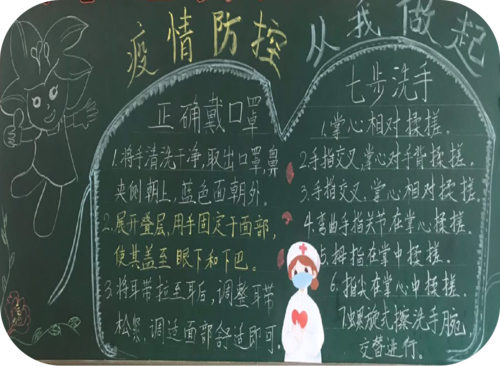 疫情防控 从我做起
正确戴口罩
1.将手清洗干净,取出口罩,鼻
夹侧朝上,蓝色面朝外。
2.展开叠层,用手固定于面部,
使其盖至眼下和下巴。
3.将耳带拉至耳后,调整耳带
松紧,调适面部舒适即可。
七步洗手
1.掌心相对揉搓。
2.手指交叉,掌心对手背揉搓。
3.手指交叉,掌心相对揉搓。
4.弯曲手指关节在掌心揉搓。
5.拇指在掌中揉搓。
6.指尖在掌心中揉搓。
7.螺旋式擦洗手腕,
交替进行。